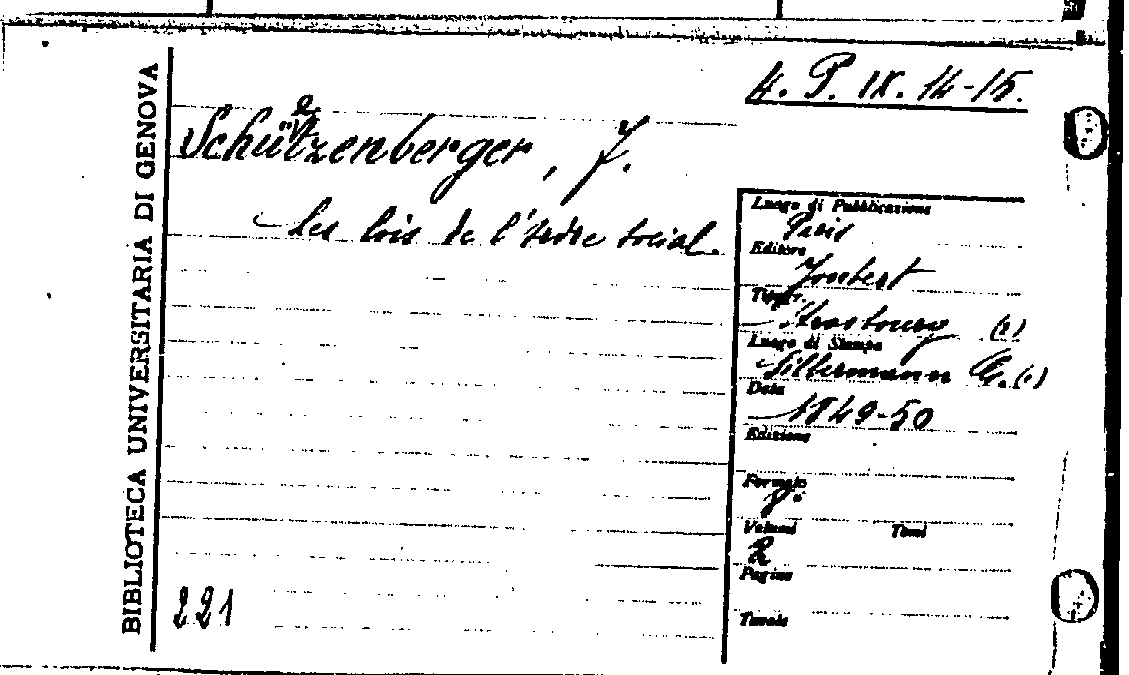 4. P. IX. 14-15.
BIBLIOTECA UNIVERSITARIA DI GENOVA
Schützenberger, F.
Les lois de l'ordre social.
Luogo di Pubblicazione
Paris
Editore
Joubert
Tipogr.
Strasbourg (2)
Luogo di Stampa
Silbermann G. (1)
Data
1849-50
Edizione
Formato
8°
Volumi Tomi
2
Pagine
Tavole
221